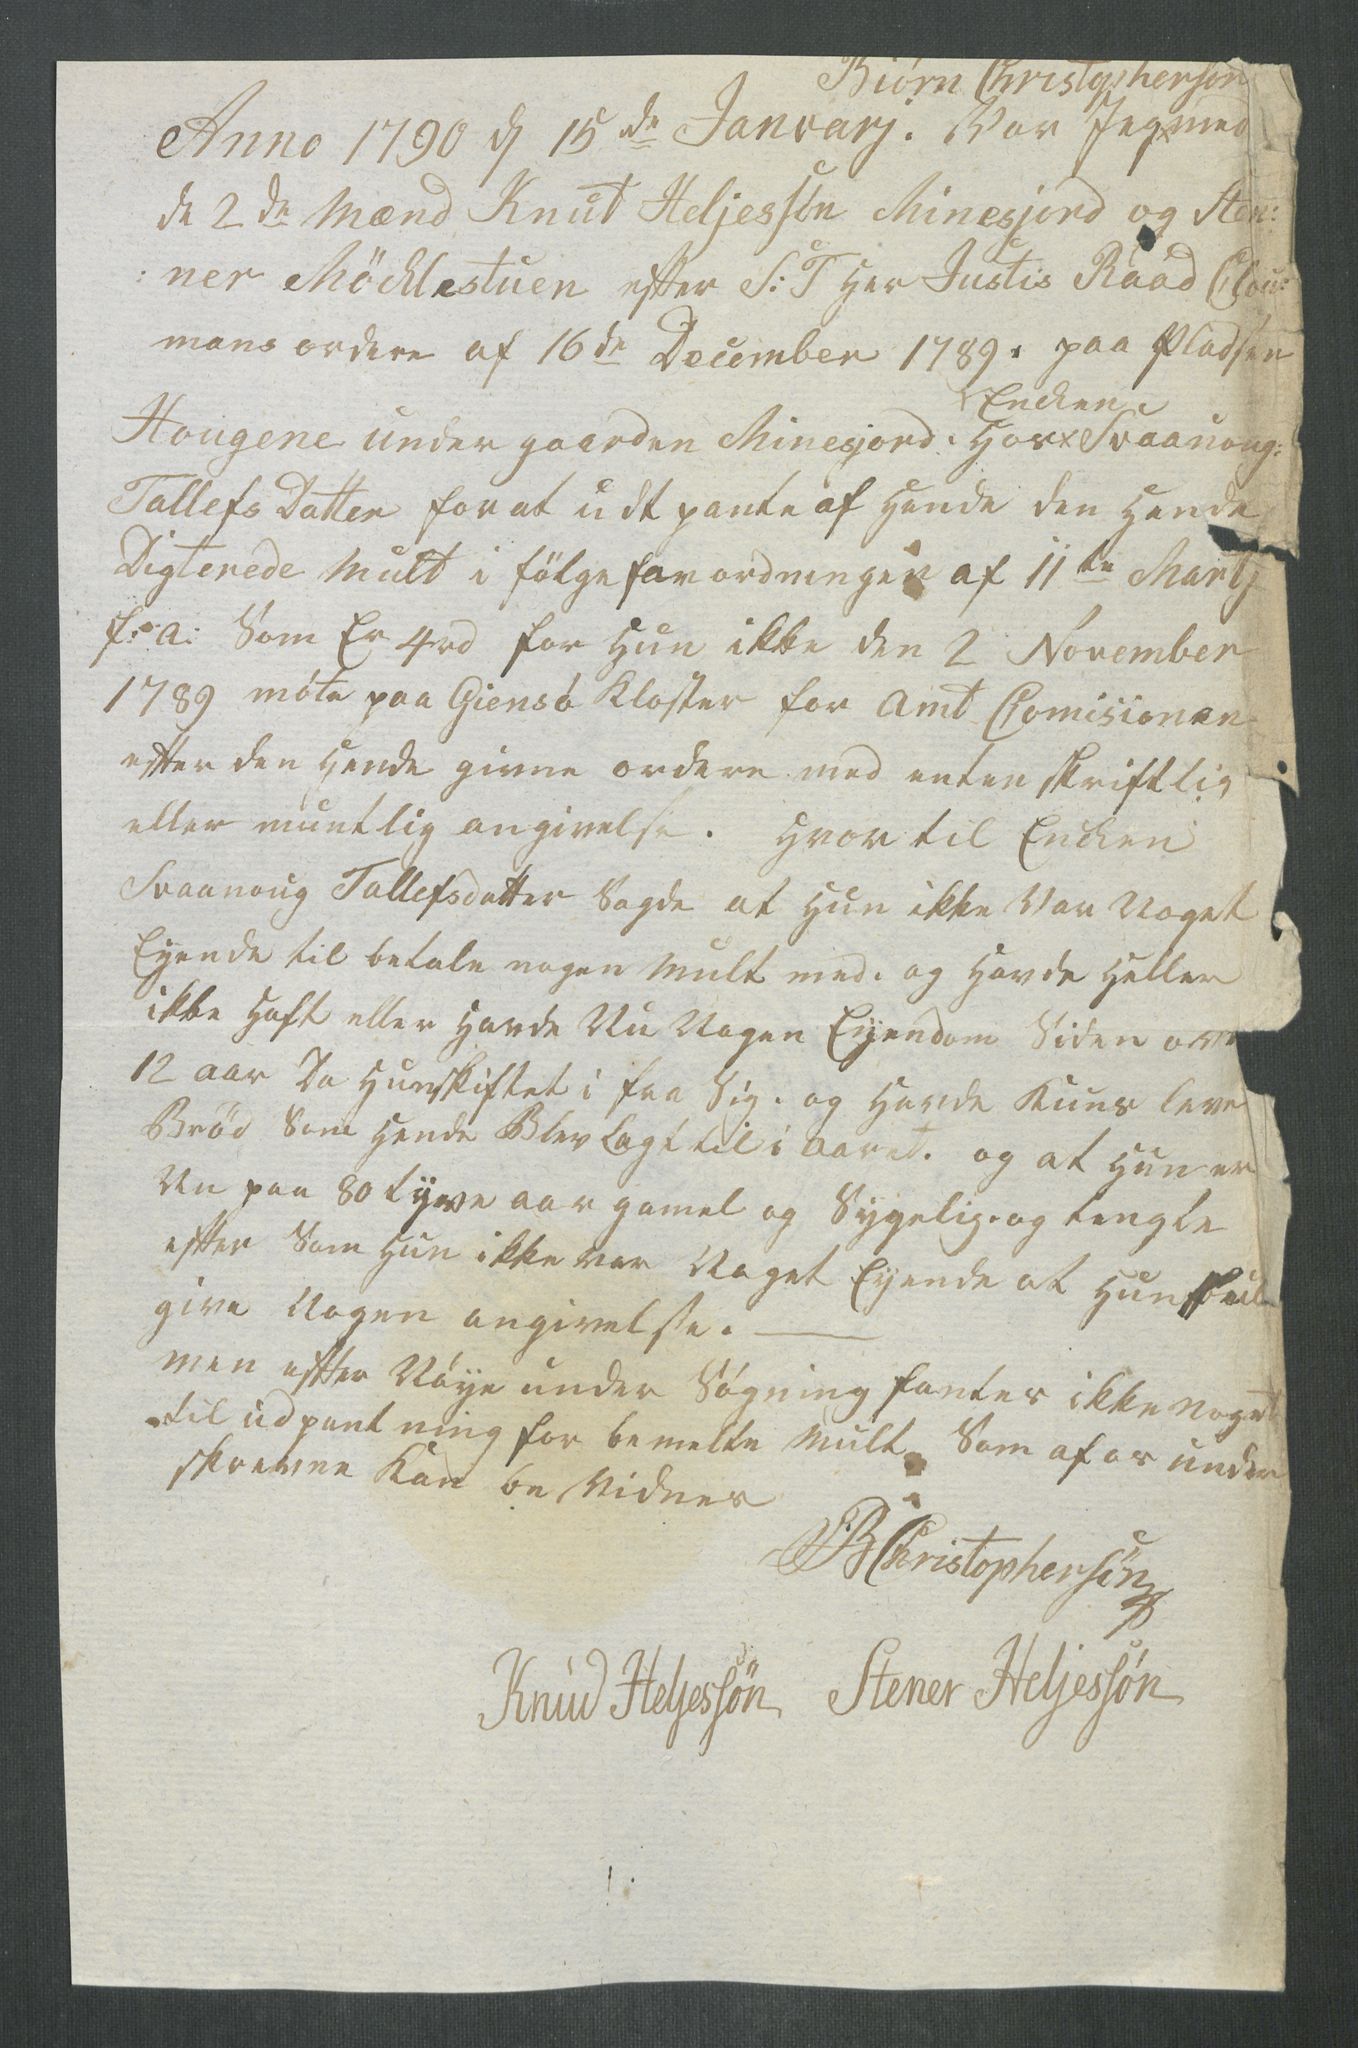 Biørn Christophersøn
Anno 1790 d 15de Januarj. Var Jeg x med
de 2de Mænd Knut Heljessøn Minesjord og Sten:
:ner Möcklestuen efter S: T Her Justis Raad Clou:
mans ordere af 16de December 1789. paa Pladsen
Encken
Hougene under gaarden Minesjord. Hos x Svaanoug:
Tallefs Datter for at udt pante af Hende den Hende
Digterede Mult i fölge forordningen af 11te Martj
f: a: Som Er 4rd for Hun ikke den 2 November
1789 møte paa Giensø Kloster for Amt Comisionen
efter den Hende givne ordere med enten skriftlig
eller muntlig angivelse. Hvor til Encken
Svaanoug Tallefsdatter Sagde at Hun ikke Var Noget
Eyende til betale nogen Mult med. og Havde Heller
ikke Haft eller Havde Nu Nogen Eyendom Siden
12 aar Da Hun skiftet i fra Sig. og Havde Kuns leve
Brød Som Hende Blev Lagt til i Aaret. og at Hun er
Nu paa 80 tyve aar gamel og Sygelig. og tengte
efter Som Hun ikke var Noget Eyende at Hun skul
give Nogen angivelse.
men efter Nøye under Søgning fantes ikke noget
til udpantning for bemelte Mult. Som af os under
skrevne Kan be Vidnes
B Christophersøn
Knud Heljessön Stener Heljessøn